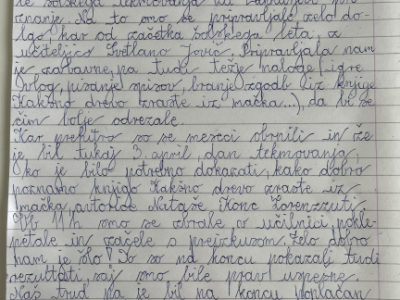 te šolskega tekmovanja za
znanje. Na to smo se pripravljale zelo do-
lgo kar od začetka šolskega leta, z
učiteljico Svetlano Jović. Pripravljala nam
je zabavne, pa tudi težje naloge (igre
vlog, pisanje spisov, branje zgodb iz knjige
Kakšno drevo zraste iz mačka...), da bi se
čim bolje odrezale.
Kar prehitro so se meseci obrnili in že
je bil tukaj 3. april, dan tekmovanja,
ko je bilo potrebno dokazati, kako dobro
poznamo knjigo Kakšno drevo zraste iz
mačka, avtorice Nataše Konc Lorenzutti.
Ob 11h smo se zbrale v učilnici, pokle-
petale in začele s preizkusom. Zelo dobro
nam je šlo! To so na koncu pokazali tudi
rezultati, saj smo bile prav uspešne.
Naš trud pa je bil na koncu poplačan